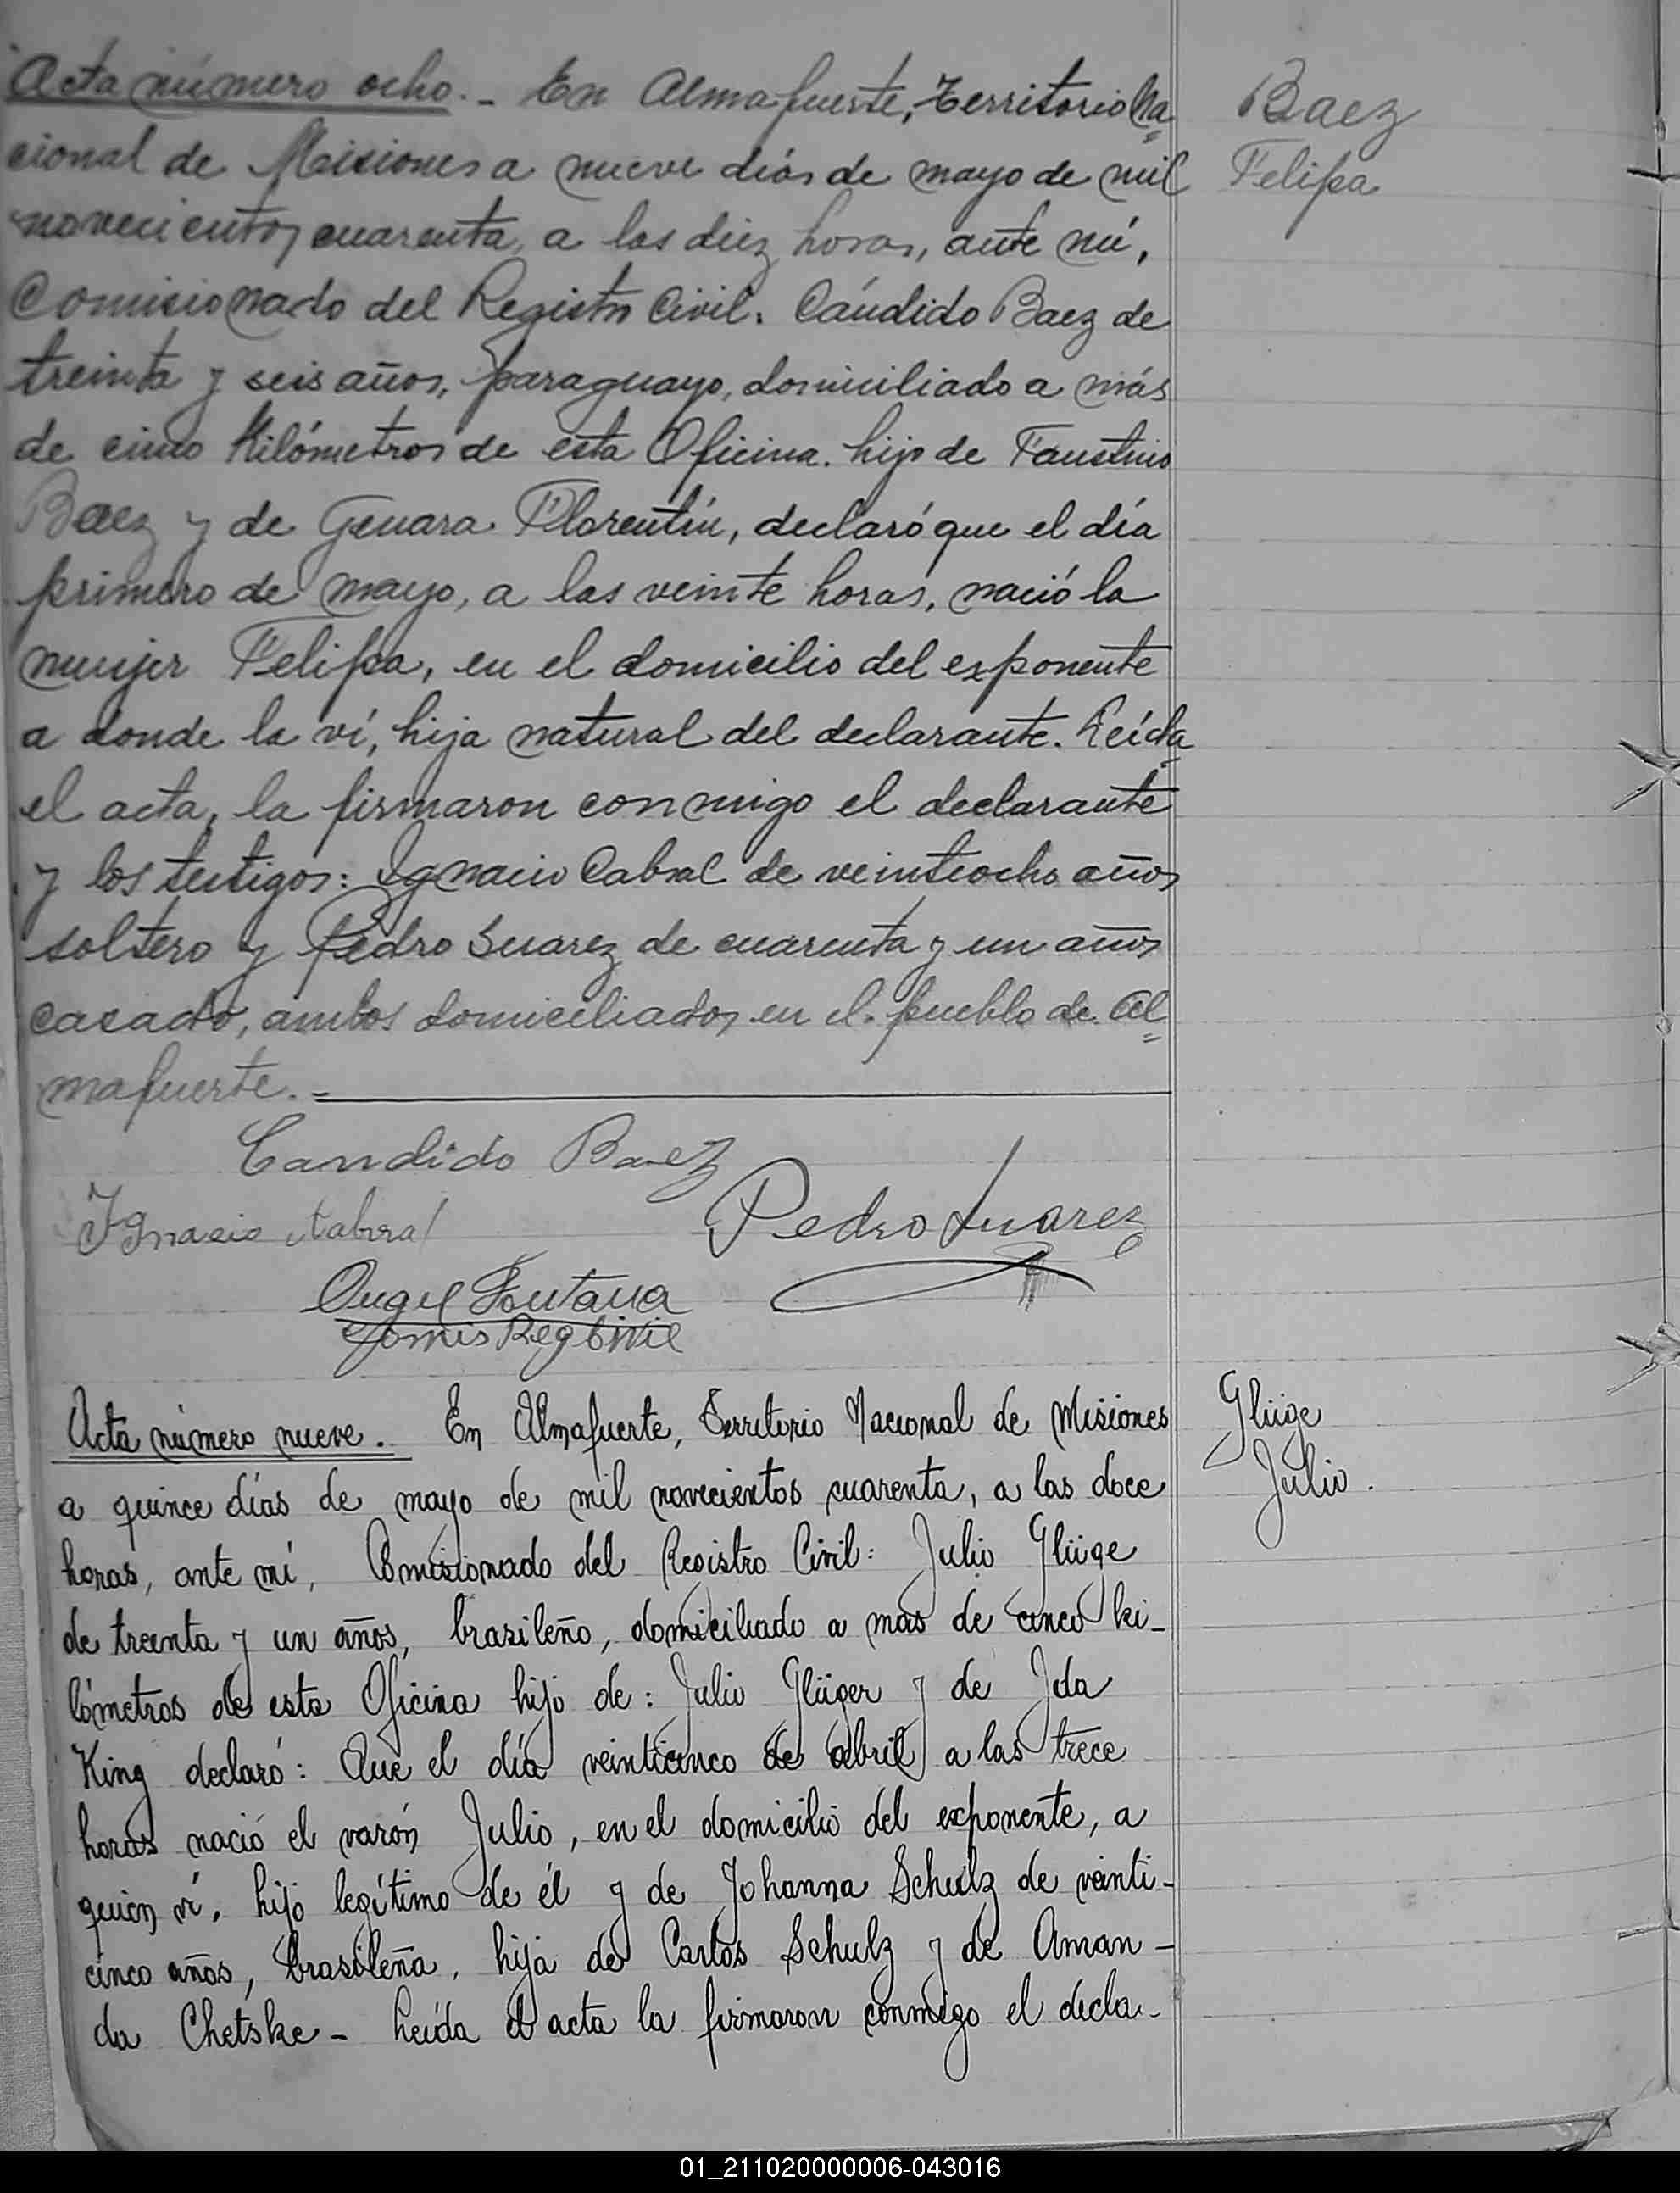 Acta número ocho. - En Almafuerte, Territorio Na=
cional de Misiones a nueve días de mayo de mil
novecientos cuarenta, a las diez horas, ante mí,
Comisionado del Registro Civil. Cándido Baez de
treinta y seis años, paraguayo, domiciliado a más
de cinco Kilómetros de esta Oficina. hijo de Faustino
Baez y de Genara Florentín, declaró que el día
primero de mayo, a las veinte horas, nació la
mujer Felipa, en el domicilio del exponente
a donde la ví, hija natural del declarante. Leída
el acta, la firmaron conmigo el declarante
y los testigos: Ignacio Cabral de veintiocho años
soltero y Pedro Suarez de cuarenta y un años
casado, ambos domiciliados en el pueblo de Al=
mafuerte. -
Baez
Felipa
Candido Baez
Ignacio Cabral
Pedro Suarez
Angel Fontana
Comis Reg Civil
Acta número nueve. En Almafuerte, Territorio Nacional de Misiones
a quince días de mayo de mil novecientos cuarenta, a las doce
horas, ante mí, Comisionado del Registro Civil: Julio Glüge
de treinta y un años, brasileño, domiciliado a mas de cinco ki-
lómetros de esta Oficina hijo de: Julio Glüger y de Ida
King declaró: Que el día veinticinco de abril a las trece
horas nació el varón Julio, en el domicilio del exponente, a
quien ví, hijo legítimo de él y de Johanna Schulz de veinti-
cinco años, brasileña, hija de Carlos Schulz y de Aman-
da Chetske - Leída el acta la firmaron conmigo el decla-
Glüge
Julio.
01_211020000006-043016